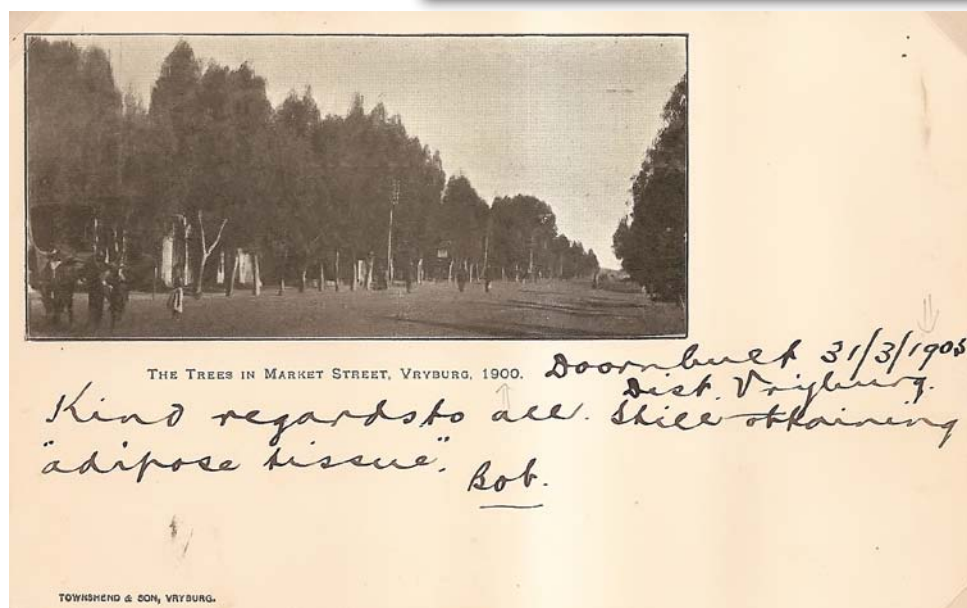 THE TREES IN MARKET STREET, VRYBURG, 1900.
Doornbult 31/3/1903
Dist. Vrijburg.
Kind regards to all. Still attaining
"adipose tissue".
Bob.
TOWNSHEND & SON, VRYBURG.